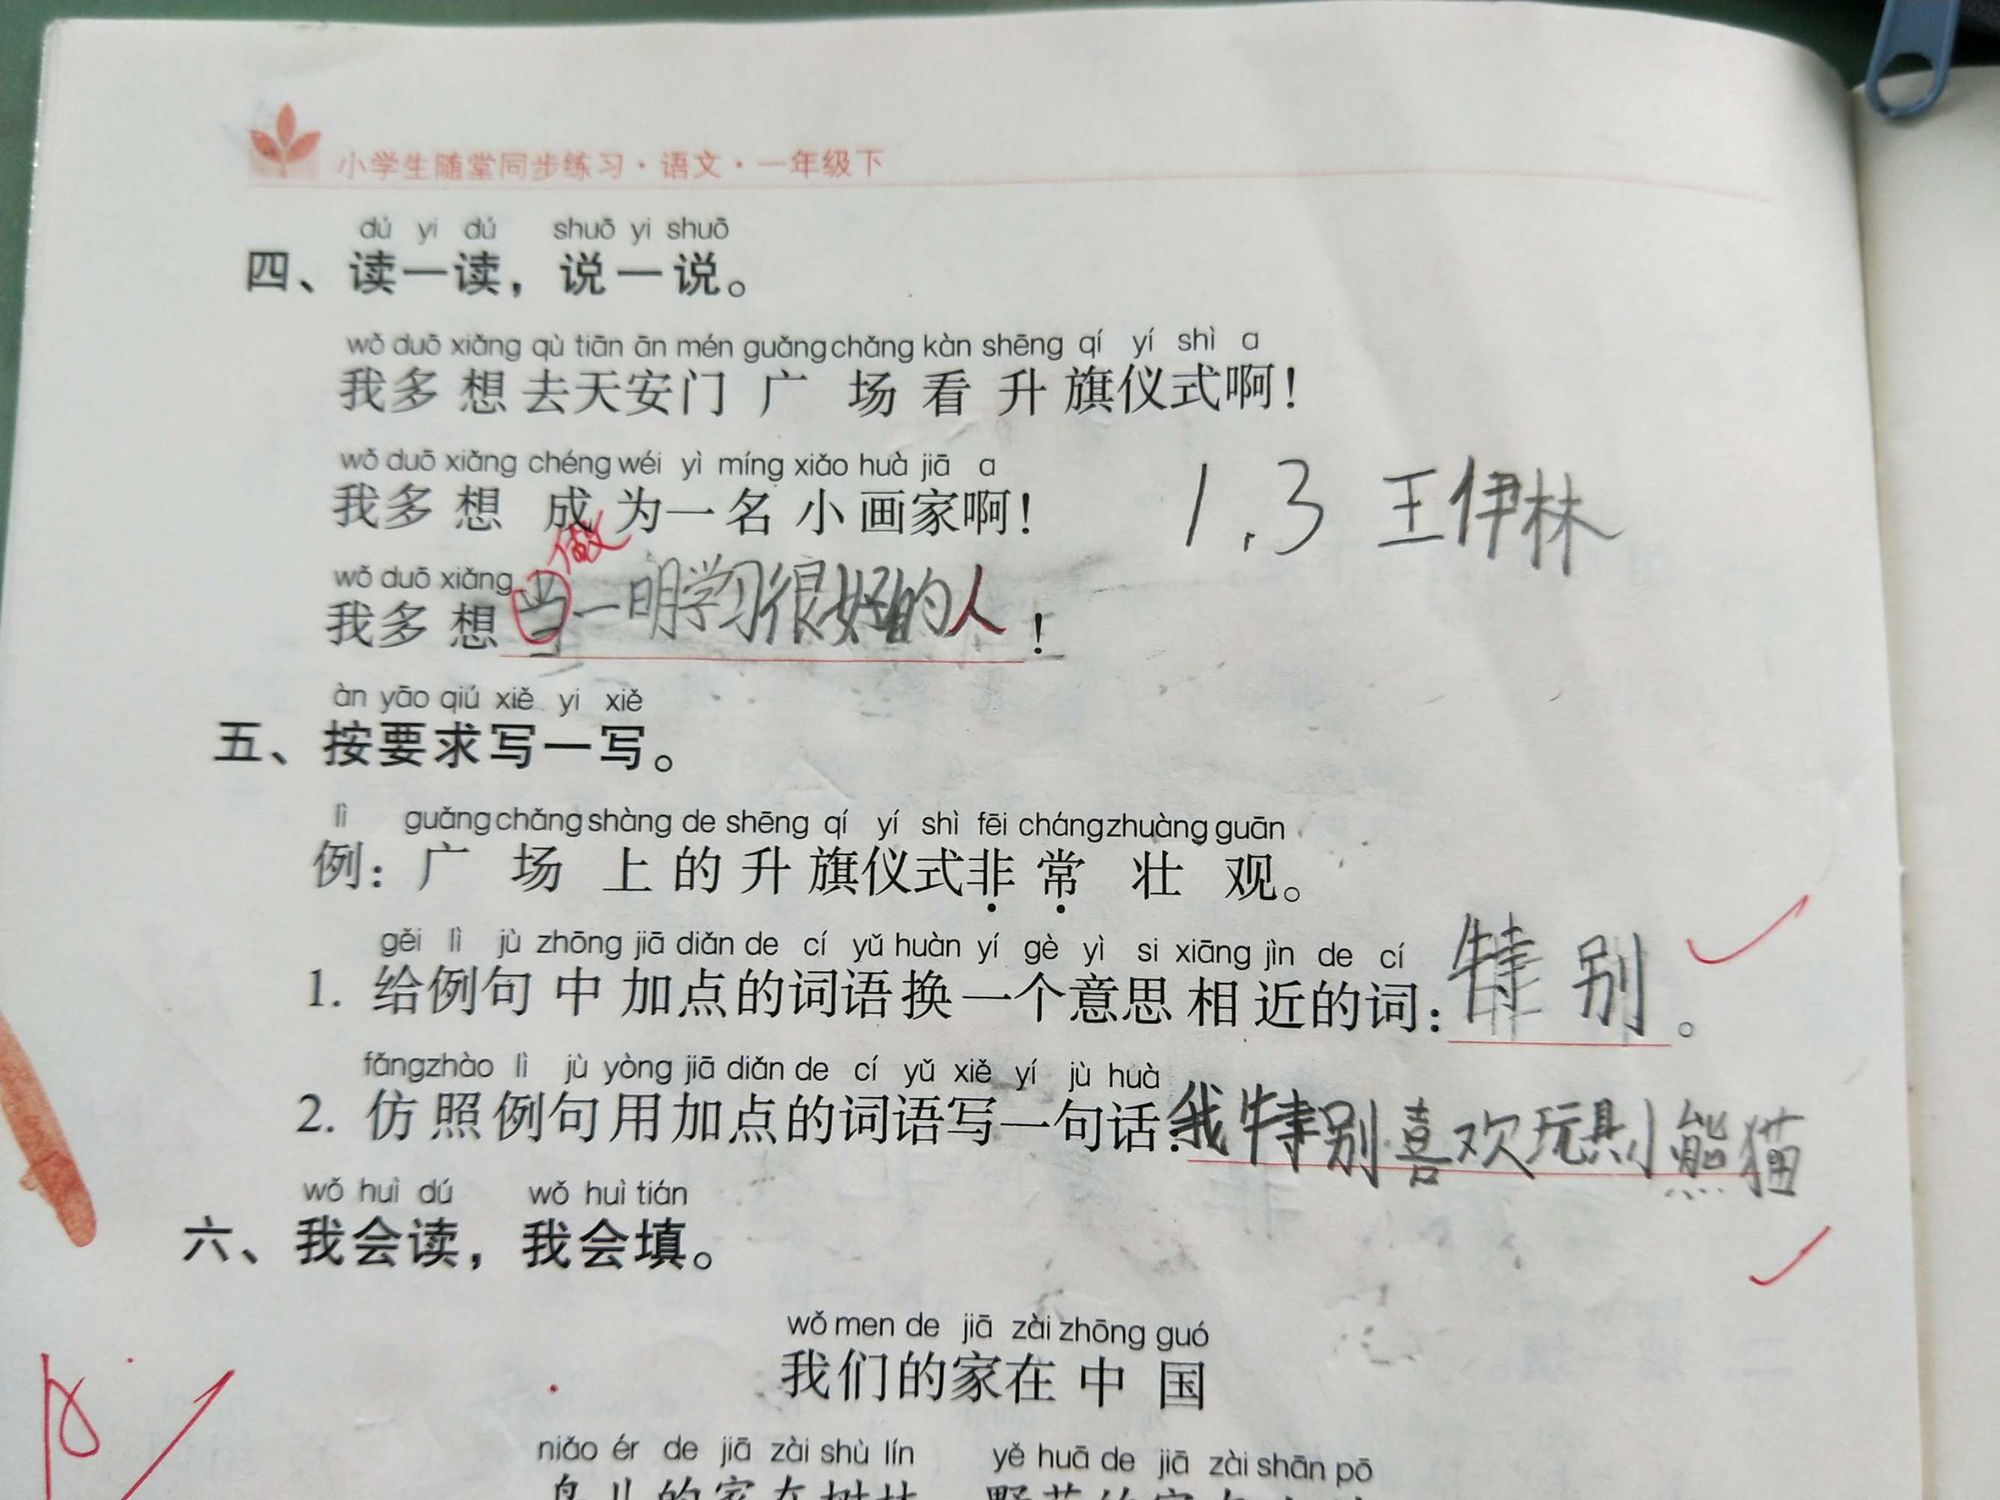 小学生随堂同步练习·语文·一年级下
dú yi dú shuō yi shuō
四、读一读，说一说。
wǒ duō xiǎng qù tiān ān mén guǎng chǎng kàn shēng qí yí shì a
我多想去天安门广场看升旗仪式啊！
wǒ duō xiǎng chéng wéi yì míng xiǎo huà jiā a
我多想成为一名小画家啊！
1.3 王伊林
做
wǒ duō xiǎng
我多想当一明学习很好的人！
àn yāo qiú xiě yi xiě
五、按要求写一写。
lì guǎng chǎng shàng de shēng qí yí shì fēi cháng zhuàng guān
例：广场上的升旗仪式非常壮观。
gěi lì jù zhōng jiā diǎn de cí yǔ huàn yí gè yì si xiāng jìn de cí
1. 给例句中加点的词语换一个意思相近的词：特别。
fǎng zhào lì jù yòng jiā diǎn de cí yǔ xiě yí jù huà
2. 仿照例句用加点的词语写一句话：我特别喜欢玩具小熊猫
wǒ huì dú wǒ huì tián
六、我会读，我会填。
wǒ men de jiā zài zhōng guó
我们的家在中国
niǎo ér de jiā zài shù lín yě huā de jiā zài shān pō
鸟儿的家在树林 野花的家在山坡